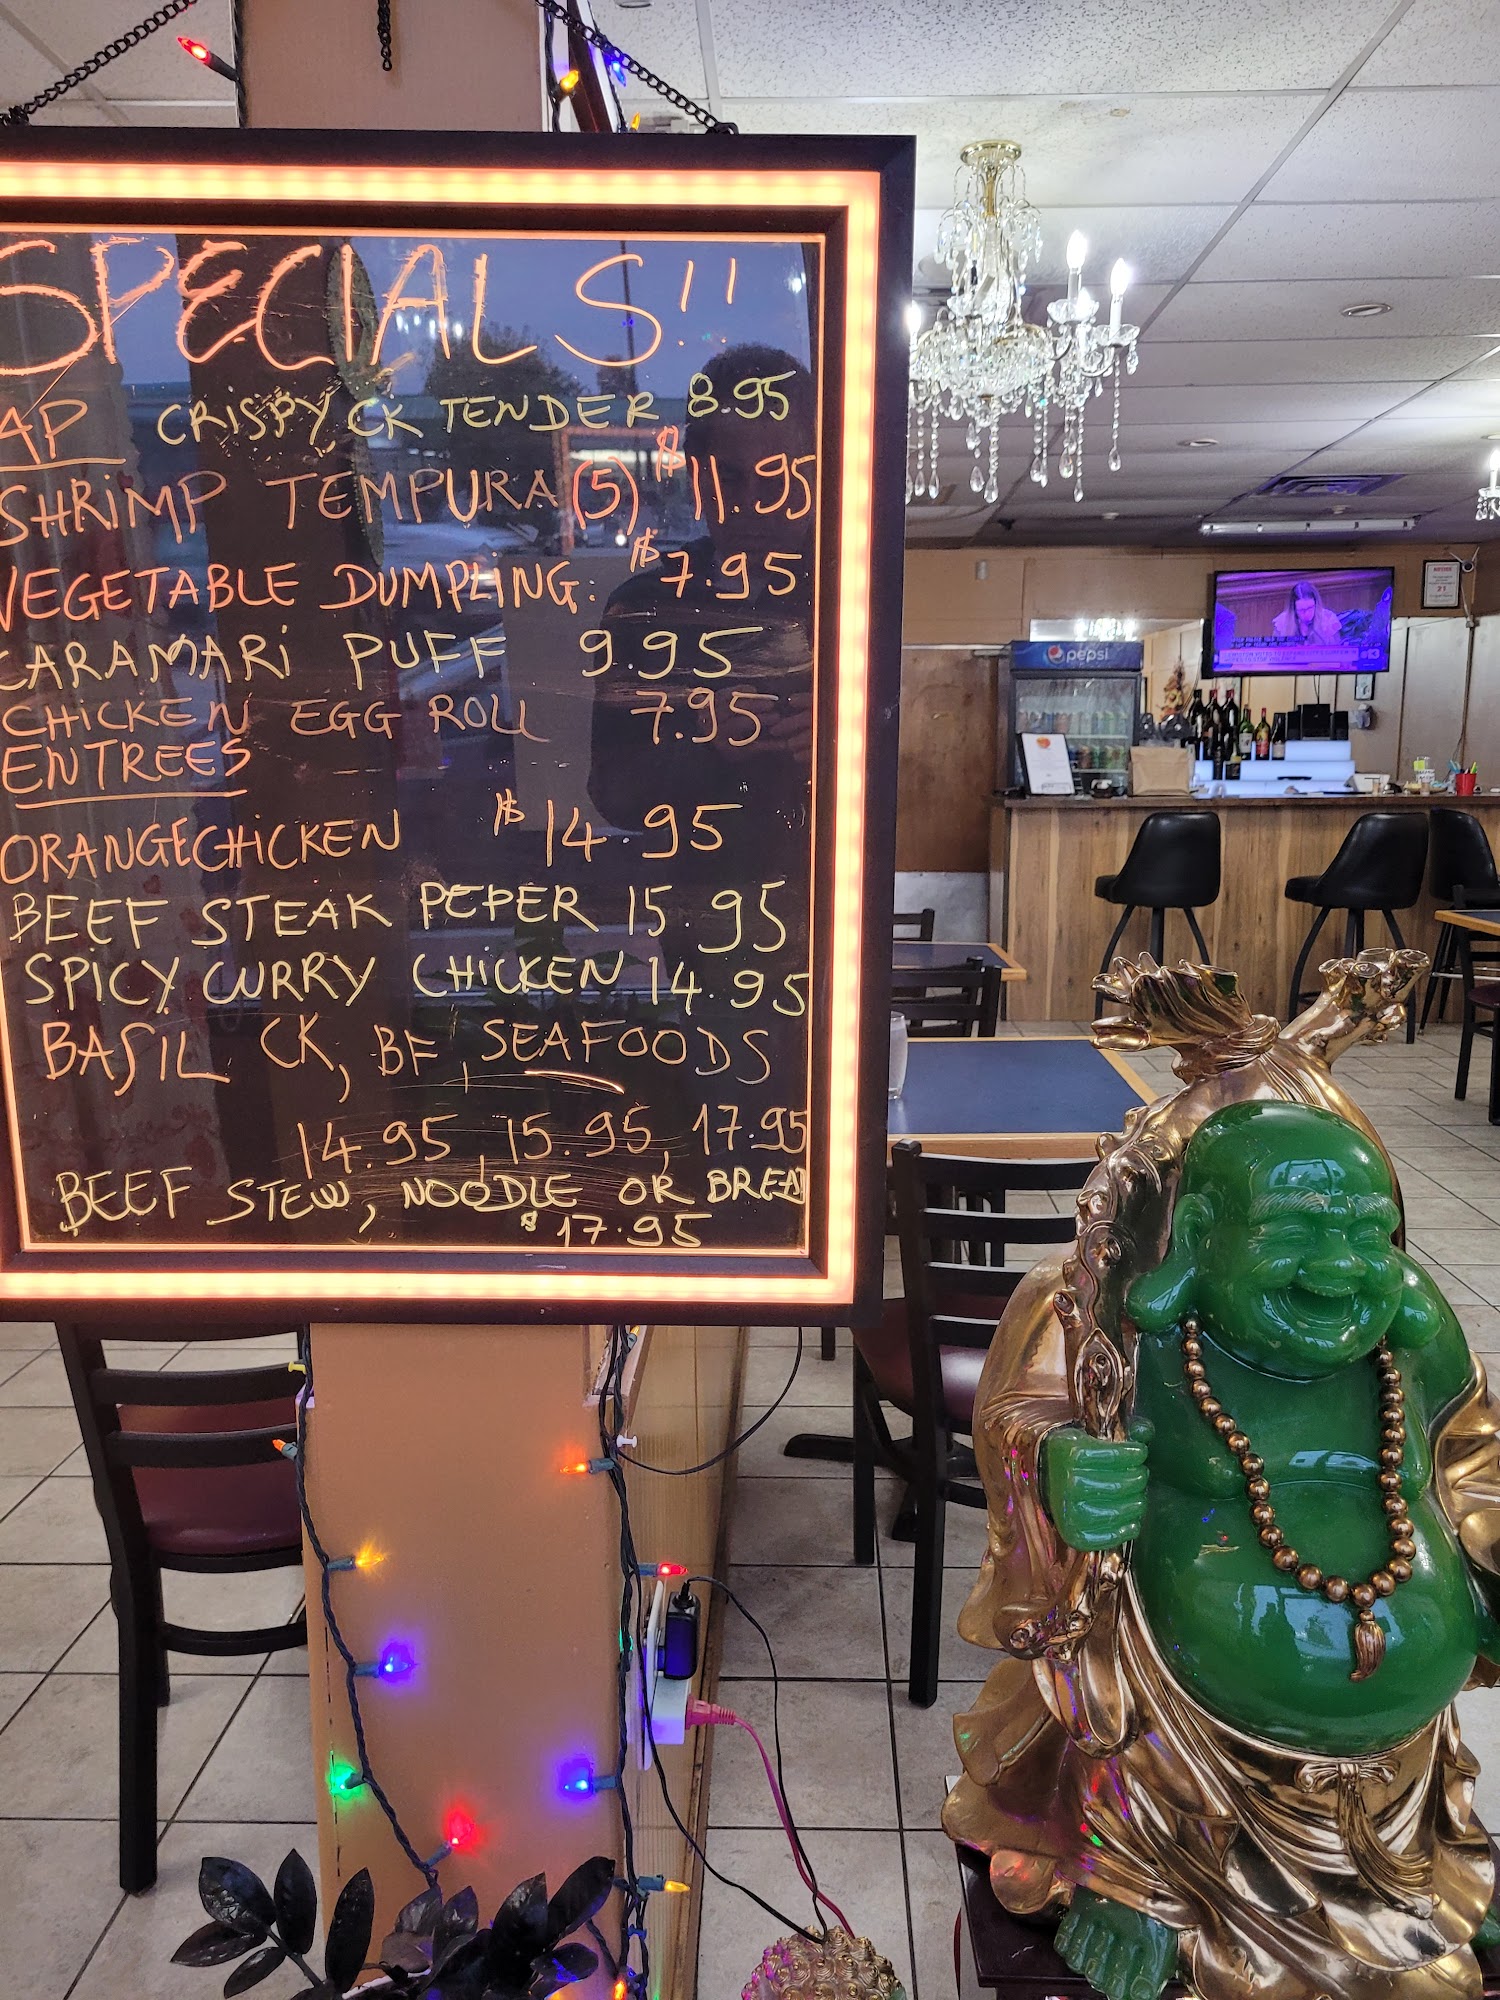 SPECIALS!!
AP CRISPY CK TENDER 8.95
SHRIMP TEMPURA (5) $ 11.95
VEGETABLE DUMPLING: $ 7.95
CARAMARI PUFF 9.95
CHICKEN EGG ROLL 7.95
ENTREES
ORANGECHICKEN $ 14.95
BEEF STEAK PEPER 15.95
SPICY CURRY CHICKEN 14.95
BASIL CK, BF, SEAFOODS
14.95, 15.95, 17.95
BEEF STEW, NOODLE OR BREAD
$ 17.95
pepsi
NOTICE
21
13